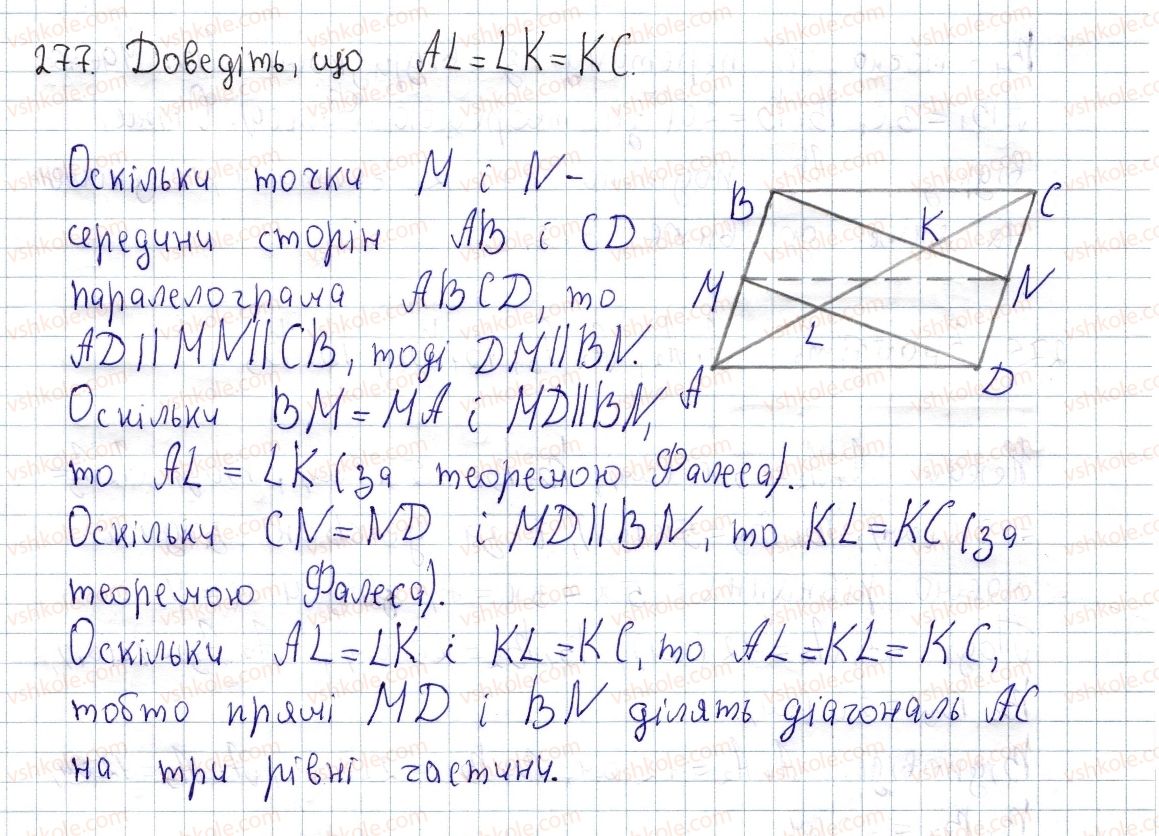 277. Доведіть, що AL = LK = KC.
Оскільки точки M і N –
середини сторін AB і CD
паралелограма ABCD, то
AD || MN || CB, тоді DM || BN.
Оскільки BM = MA і MD || BN,
то AL = LK (за теоремою Фалеса).
Оскільки CN = ND і MD || BN, то KL = KC (за
теоремою Фалеса).
Оскільки AL = LK і KL = KC, то AL = KL = KC,
тобто прямі MD і BN ділять діагональ AC
на три рівні частини.
B
C
K
M
N
L
A
D
vshkole.com